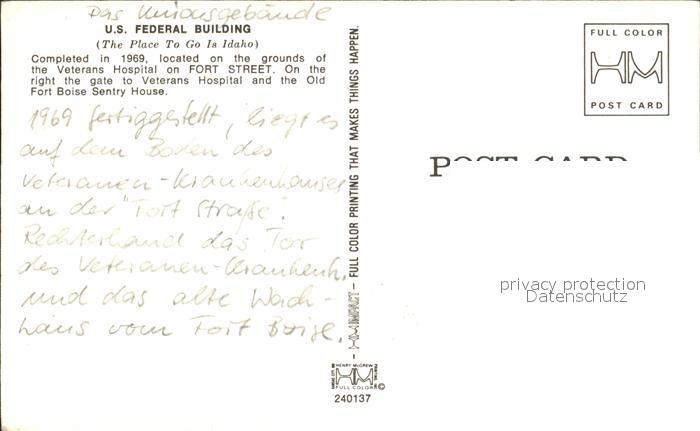 Das Unionsgebäude
U.S. FEDERAL BUILDING
(The Place To Go Is Idaho)
Completed in 1969, located on the grounds of
the Veterans Hospital on FORT STREET. On the
right the gate to Veterans Hospital and the Old
Fort Boise Sentry House.
1969 fertiggestellt, liegt es
auf dem Boden des
Veteranen-Krankenhauses
an der "Fort Straße".
Rechterhand das Tor
des Veteranen-Krankenh.
und das alte Wach-
haus vom Fort Boise.
- HM IMPACT - FULL COLOR PRINTING THAT MAKES THINGS HAPPEN.
HENRY McGREW
HM
FULL COLOR ©
240137
FULL COLOR
HM
POST CARD
POST CARD
privacy protection
Datenschutz